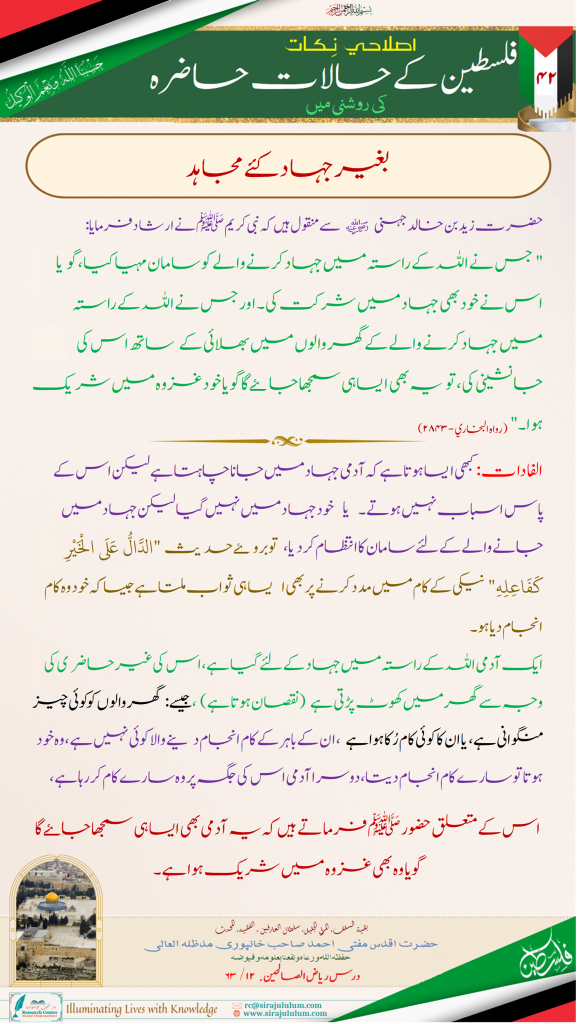 بسم اللہ الرحمن الرحیم
حَسْبُنَا اللّٰهُ وَنِعْمَ الْوَكِيْل
اصلاحی نِکات
فلسطین کے حالات حاضرہ
کی روشنی میں
۴۲
بغیر جہاد کئے مجاہد
حضرت زید بن خالد جہنی رضی اللہ عنہ سے منقول ہیں کہ نبی کریم ﷺ نے ارشاد فرمایا:
" جس نے اللہ کے راستہ میں جہاد کرنے والے کو سامان مہیا کیا، گویا
اس نے خود بھی جہاد میں شرکت کی۔ اور جس نے اللہ کے راستہ
میں جہاد کرنے والے کے گھر والوں میں بھلائی کے ساتھ اس کی
جانشینی کی، تو یہ بھی ایسا ہی سمجھا جائے گا گویا خود غزوہ میں شریک
ہوا۔" (رواہ البخاري-۲۸۴۳)
الفادات: کبھی ایسا ہوتا ہے کہ آدمی جہاد میں جانا چاہتا ہے لیکن اس کے
پاس اسباب نہیں ہوتے۔ یا خود جہاد میں نہیں گیا لیکن جہاد میں
جانے والے کے لئے سامان کا انتظام کر دیا، تو بروئے حدیث "الدَّالُّ عَلَى الْخَيْرِ
كَفَاعِلِهِ" نیکی کے کام میں مدد کرنے پر بھی ایسا ہی ثواب ملتا ہے جیسا کہ خود وہ کام
انجام دیا ہو۔
ایک آدمی اللہ کے راستہ میں جہاد کے لئے گیا ہے، اس کی غیر حاضری کی
وجہ سے گھر میں کھوٹ پڑتی ہے (نقصان ہوتا ہے)، جیسے: گھر والوں کو کوئی چیز
منگوانی ہے، یا ان کا کوئی کام رُکا ہوا ہے ، ان کے باہر کے کام انجام دینے والا کوئی نہیں ہے، وہ خود
ہوتا تو سارے کام انجام دیتا، دوسرا آدمی اس کی جگہ پر وہ سارے کام کر رہا ہے،
اس کے متعلق حضور ﷺ فرماتے ہیں کہ یہ آدمی بھی ایسا ہی سمجھا جائے گا
گویا وہ بھی غزوہ میں شریک ہوا ہے۔
حضرت اقدس مفتی احمد صاحب خانپوری مدظلہ العالی
حفظه الله ورعاه ونفعنا بعلومه وفيوضه
درس ریاض الصالحین۔ ۱۲ / ۶۳
فلسطین
Research Centre
Illuminating Lives with Knowledge
rc@sirajululum.com
www.sirajululum.com